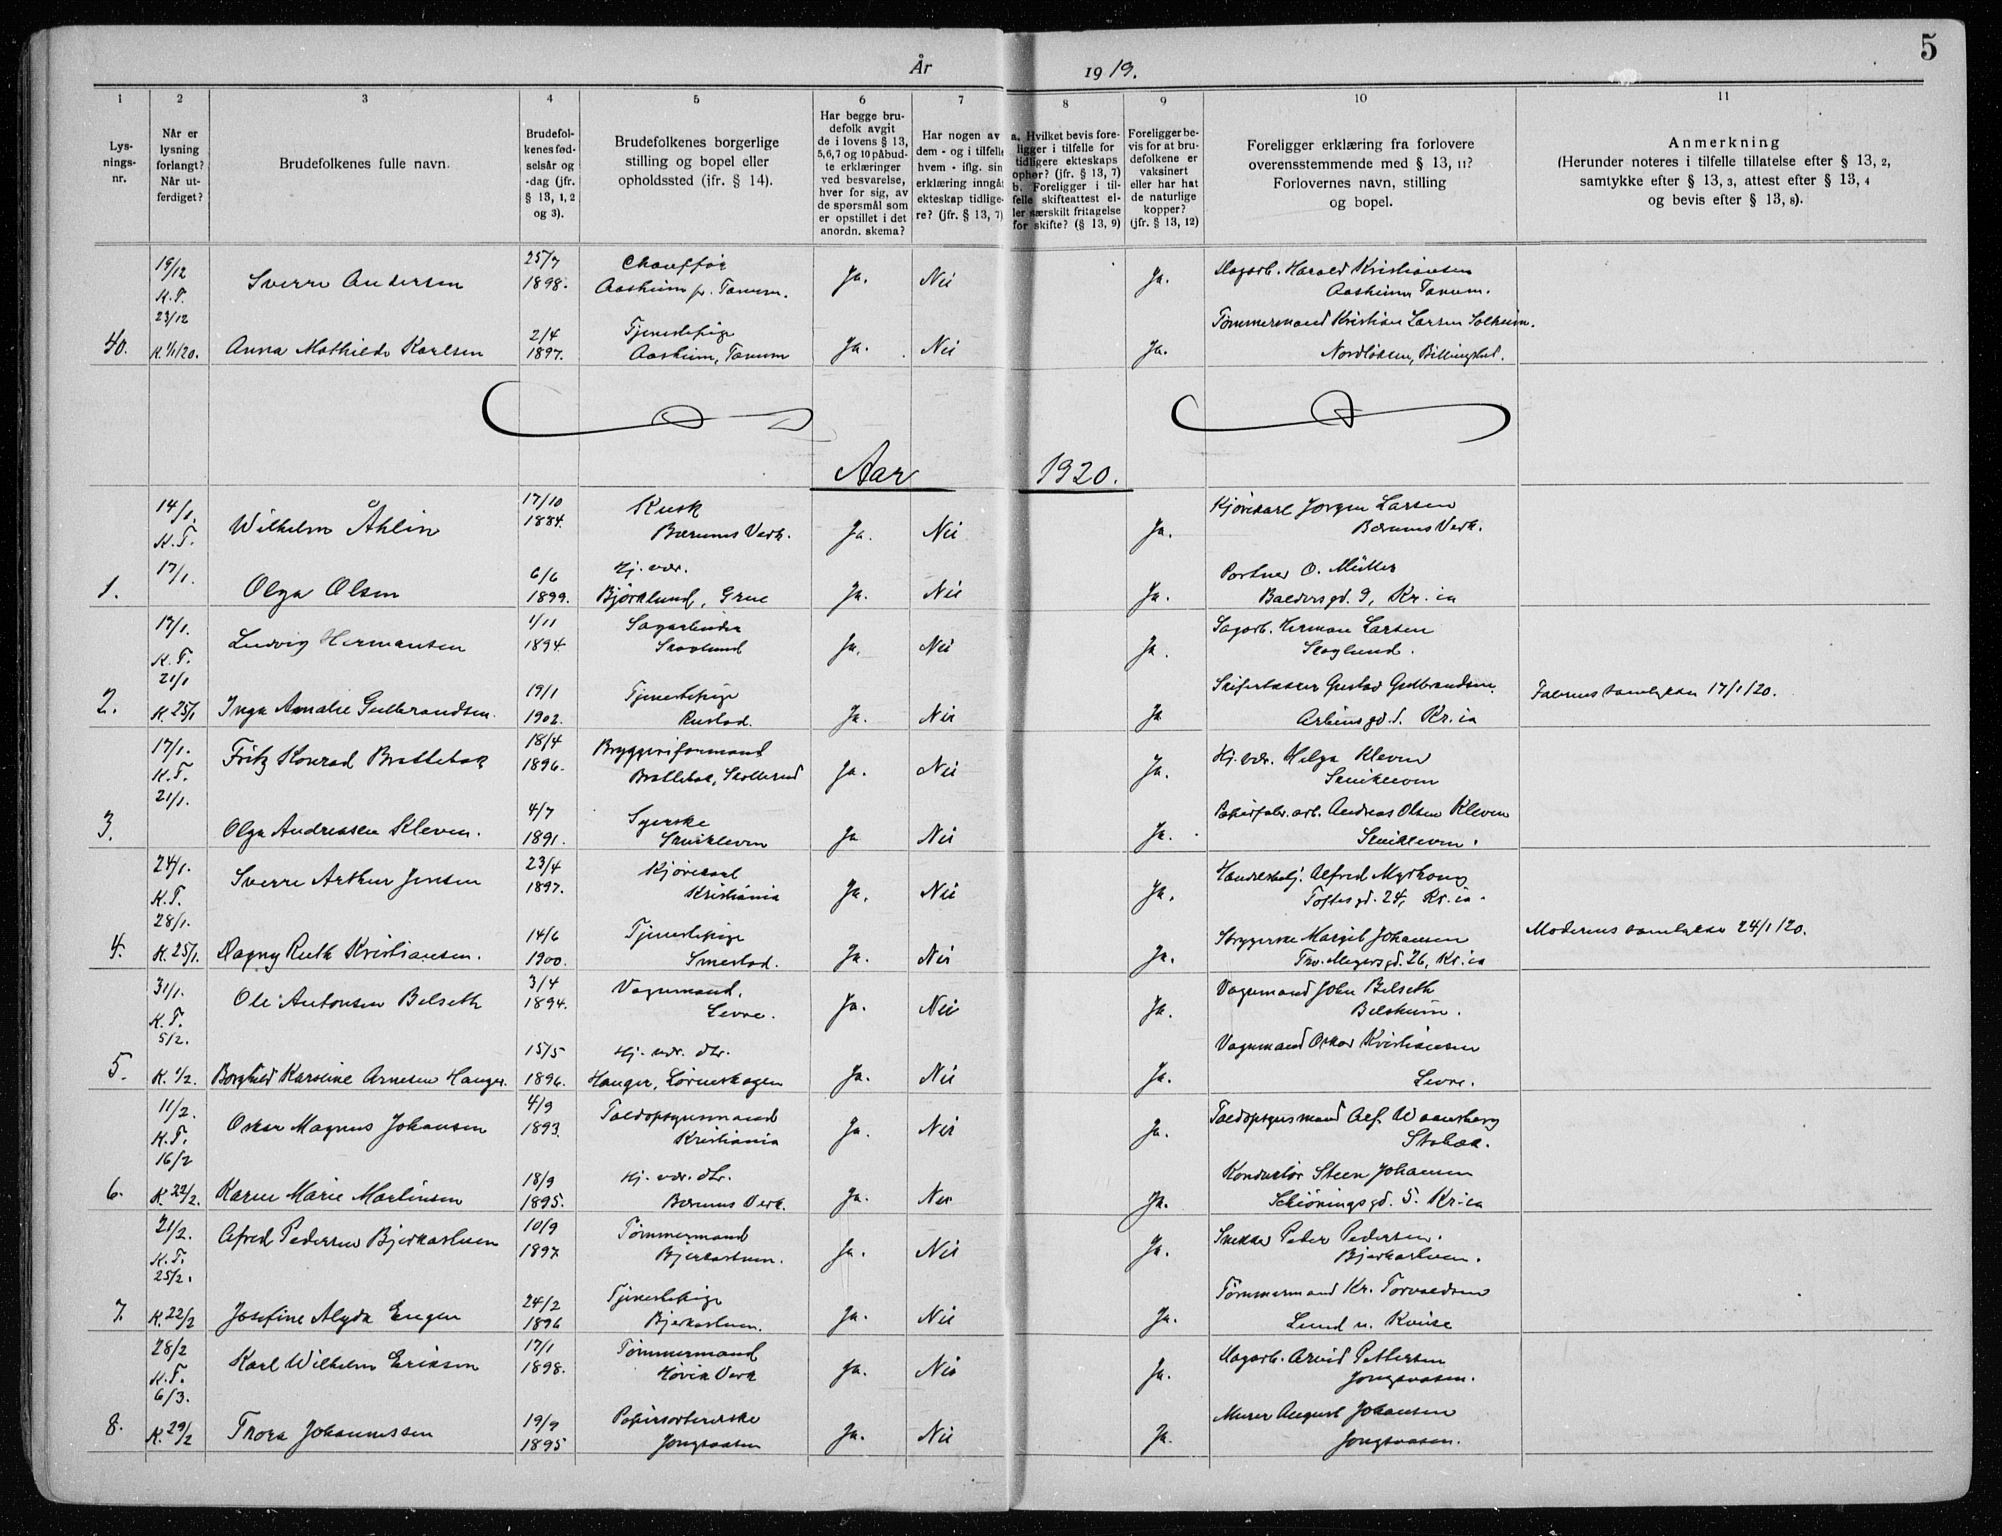 5
År 1919.
1 2 3 4 5 6 7 8 9 10 11
Lys-
nings-
nr.
Når er
lysning
forlangt?
Når ut-
ferdiget?
Brudefolkenes fulle navn.
Brudefol-
kenes fød-
selsår og
-dag (jfr.
§ 13, 1, 2
og 3).
Brudefolkenes borgerlige
stilling og bopel eller
opholdssted (jfr. § 14).
Har begge bru-
defolk avgit
de i lovens § 13,
5,6,7 og 10 påbud-
te erklæringer
ved besvarelse,
hver for sig, av
de spørsmål som
er opstillet i det
anordn. skema?
Har nogen av
dem - og i tilfelle
hvem - iflg. sin
erklæring inngåt
ekteskap tidlige-
re? (jfr. § 13, 7)
a. Hvilket bevis fore-
ligger i tilfelle for
tidligere ekteskaps
ophør? (jfr. § 13, 7)
b. Foreligger i til-
felle skifteattest el-
ler særskilt fritagelse
for skifte? (§ 13, 9)
Foreligger be-
vis for at bru-
defolkene er
vaksinert
eller har hat
de naturlige
kopper?
(jfr. § 13, 12)
Foreligger erklæring fra forlovere
overensstemmende med § 13, 11?
Forlovernes navn, stilling
og bopel.
Anmerkning
(Herunder noteres i tilfelle tillatelse efter § 13, 2,
samtykke efter § 13, 3, attest efter § 13, 4
og bevis efter § 13, 8).
19/12 25/7 Chauffør Dagarb. Harald Kristiansen
K.T. Sverre Andersen 1898. Aasheim pr. Tanum. Ja. Nei Ja. Aasheim Tanum.
23/12 2/4 Tjenestepige Tømmermand Kristian Larsen Solheim.
40. K. 1/1 20. Anna Mathilde Karlsen 1897. Aasheim, Tanum Ja. Nei Ja. Billingstad.
Aar 1920.
14/1. 17/10 Kusk Kjørekarl Jørgen Larsen
K.T. Wilhelm Åhlin 1884. Bærums Verk. Ja. Nei Ja. Bærums Verk.
17/1. 6/6 Hj. vær. Portner O. Müller
1. Olga Olsen 1899. Bjørklund, Grue Ja. Nei Ja. Baldersgd. 9, Kr.ia
17/1. 1/11 Sagarbeider Sagarb. Herman Larsen
K.T. Ludvig Hermansen 1894. Skoglund Ja. Nei Ja. Skoglund.
21/1 19/1 Tjenestepige Gustav Gulbrandsen. Faderens samtykke 17/1 20.
2. K. 25/1 Inga Amalie Gulbrandsen. 1902. Rustad. Ja. Nei Ja Kr.ia
17/1. 18/4 Bryggeriformand Hj. vær. Helga Kleven
K.T. Fritz Konrad Brattebak 1896. Brattebak, Skollerud Ja. Nei Ja. Smikleven
21/1. 4/7 Syerske Papirfabr. arb. Andreas Olsen Kleven
3. Olga Andreasen Kleven. 1891. Smikleven Ja Nei Ja. Smikleven.
24/1. 23/4 Kjørekarl Handelsbetj. Alfred Myrhaug
K.T. Sverre Arthur Jensen 1897. Kristiania Ja. Nei Ja. Toftesgd. 24, Kr.ia.
28/1. 14/6 Tjenestepige Strygerske Margit Johansen Moderens samtykke 24/1 20.
4. K. 25/1. Dagny Ruth Kristiansen. 1900. Smestad. Ja. Nei Ja. Tov. Meyersgd. 26, Kr.ia
31/1. 3/4 Vognmand. Vognmand John Belseth
K.T. Ole Antonsen Belseth 1894. Levre. Ja. Nei Ja. Belsheim.
5/2. 15/5 Hj. vær. dtr. Vognmand Oskar Kristiansen
5. K. 1/2. Borghild Karoline Arnesen Hanger. 1896. Hanger, Lørenskogen Ja. Nei Ja. Levre.
11/2. 4/9 Toldopsynsmand Toldopsynsmand Alf
K.T. Oskar Magnus Johansen 1893. Kristiania Ja. Nei Ja. Stabæk.
16/2 18/9 Hj. vær. dtr. Konduktør Steen Johansen
6. K. 22/2. Karen Marie Martinsen 1895. Bærums Verk. Ja. Nei Ja. Schøningsgd. 5. Kr.ia
21/2. 10/9 Tømmermand Snekker Peder Pedersen.
K.T. Alfred Pedersen Bjerkaslueen 1897. Bjerkaslueen. Ja. Nei Ja. Bjerkaslueen.
25/2. 24/2 Tjenestepige Tømmermand Kr. Torvaldsen
7. K. 22/2 Josefine Alyda Engen 1896 Bjerkaslueen. Ja. Nei Ja. Lund
28/2 17/1 Tømmermand Dagarb. Arvid Pettersen
K.T. Karl Wilhelm Eriksen 1898. Høvik Verk Ja. Nei Ja. Jongsaasen.
6/3. 19/9 Papirsortererske Murer August Johansen
8. K. 29/2 Trora Johannessen 1895 Jongsaasen Ja. Nei Ja. Jongsaasen.